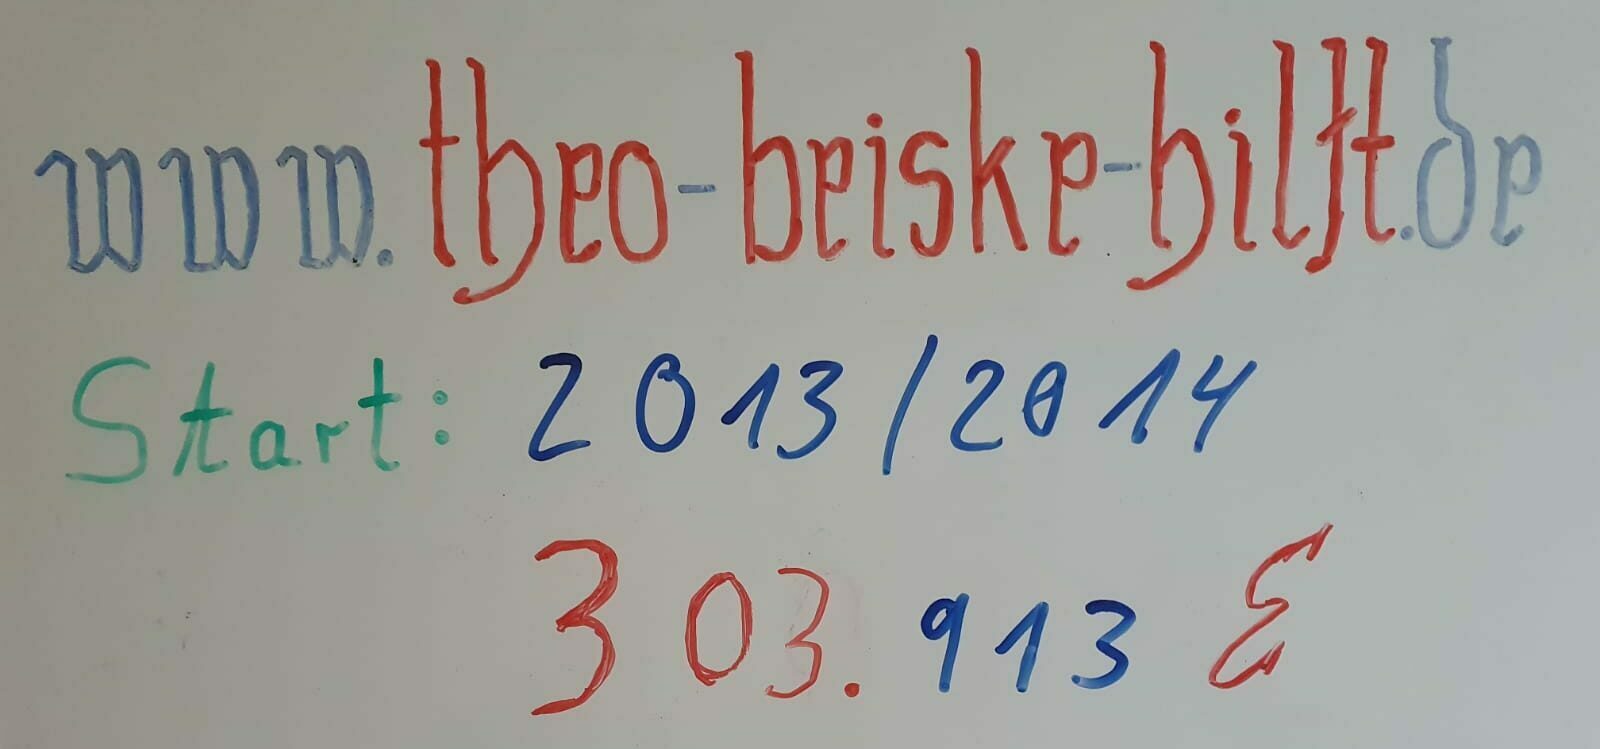 www.theo-beiske-hilft.de
Start: 2013/2014
303.913 €